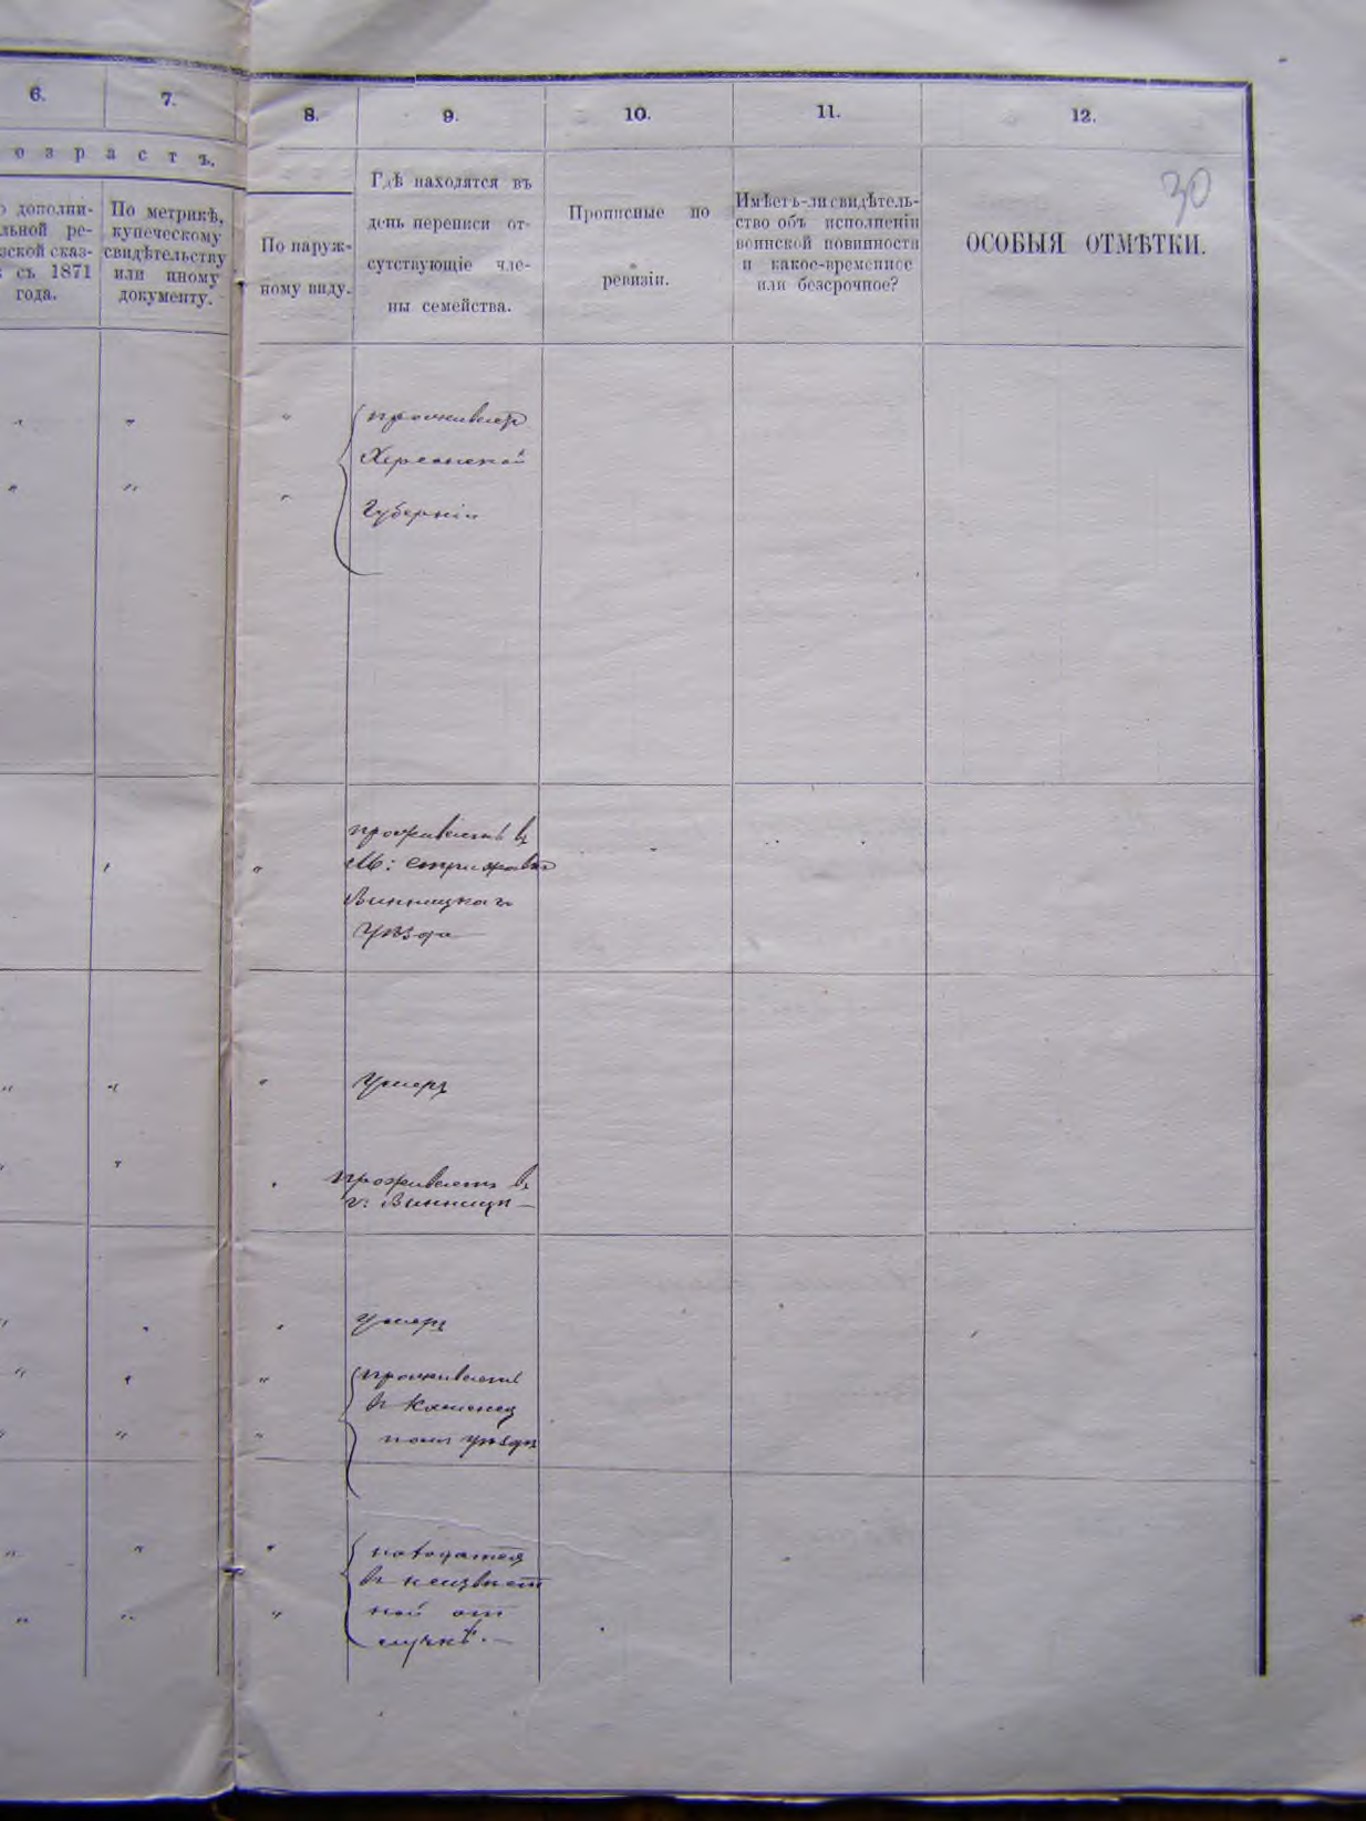 6.
7.
8.
9.
10.
11.
12.
озрастъ.
30
дополни-
льной ре-
зской сказ-
съ 1871
года.
По метрикѣ,
купеческому
свидѣтельству
или иному
документу.
По наруж-
ному виду.
Гдѣ находятся въ
день переписи от-
сутствующіе чле-
ны семейства.
Прописные по
ревизіи.
Имѣетъ-ли свидѣтель-
ство объ исполненіи
воинской повинности
и какое-временное
или безсрочное?
ОСОБЫЯ ОТМѢТКИ.
проживает
Херсонской
Губерніи
проживаетъ въ
М:
Винницкаго
Уѣзда
Умеръ
проживаетъ въ
г: Винницѣ
умеръ
проживаетъ
въ Каменец
комъ уѣздѣ
находятся
въ неизвѣст
ной от
лучкѣ.